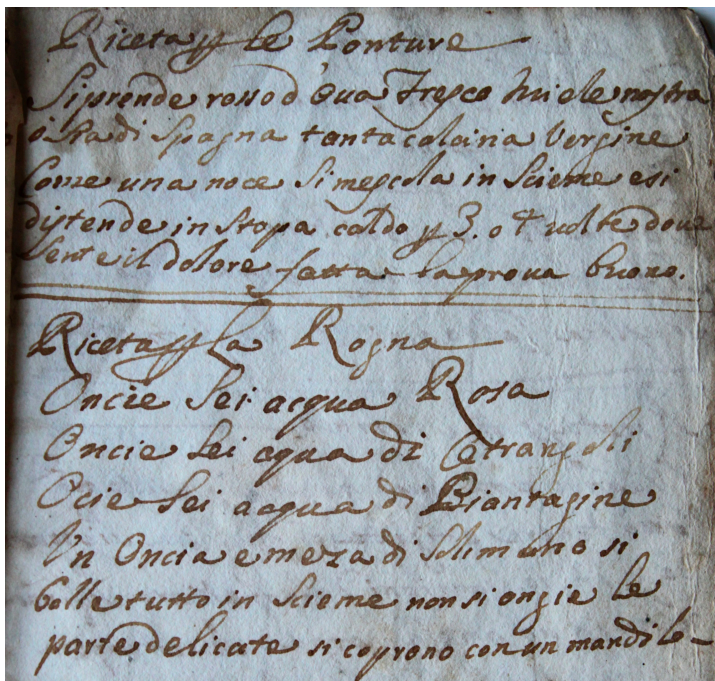 Riceta p le Ponture
Si prende rosso d'Oua Fresco Miele nostra
o Sia di Spagna tanta calcina Vergine
Come una noce Si mescola in Scieme e si
distende in Stopa caldo p 3. o 4 uolte doue
Sente il dolore fatta la proua buono.
Riceta p la Rogna
Oncie Sei acqua Rosa
Oncie Sei aqua di Cetrangoli
Ocie Sei acqua di Piantagine
Un Oncia e meza di Solimano si
bolle tutto in Scieme non si ongie le
parte delicate si coprono con un mandilo